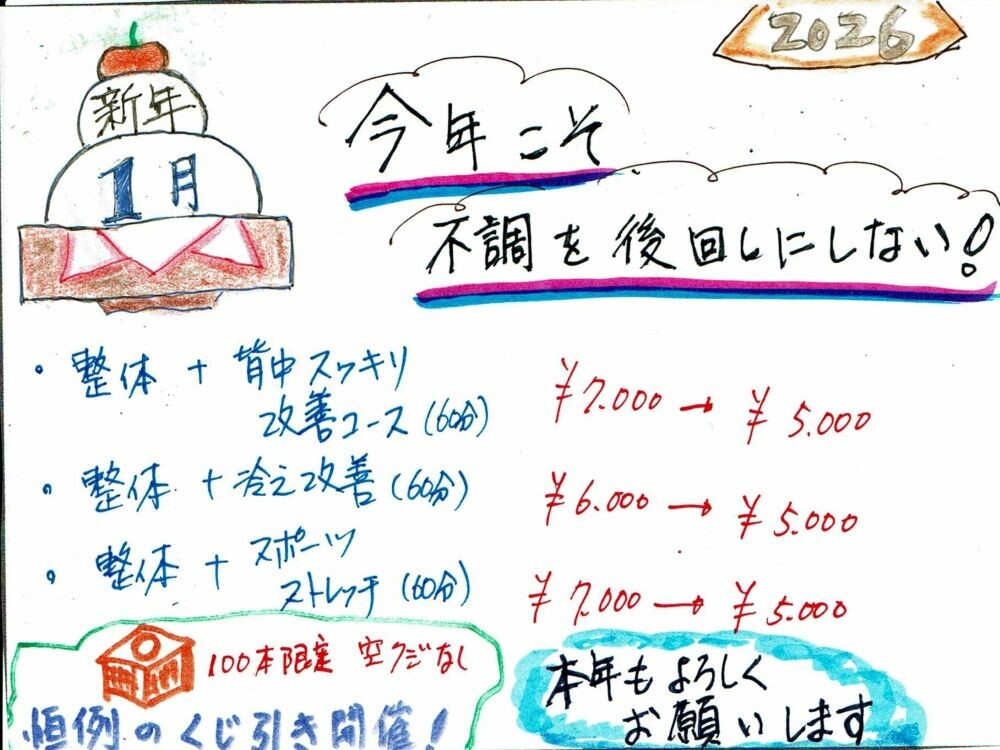 2026
新年
1月
今年こそ
不調を後回しにしない!
・整体 + 背中スッキリ
改善コース (60分)
¥7.000 → ¥5.000
・整体 + 冷え改善 (60分)
¥6.000 → ¥5.000
・整体 + スポーツ
ストレッチ (60分)
¥7.000 → ¥5.000
100本限定 空クジなし
恒例のくじ引き開催!
本年もよろしく
お願いします